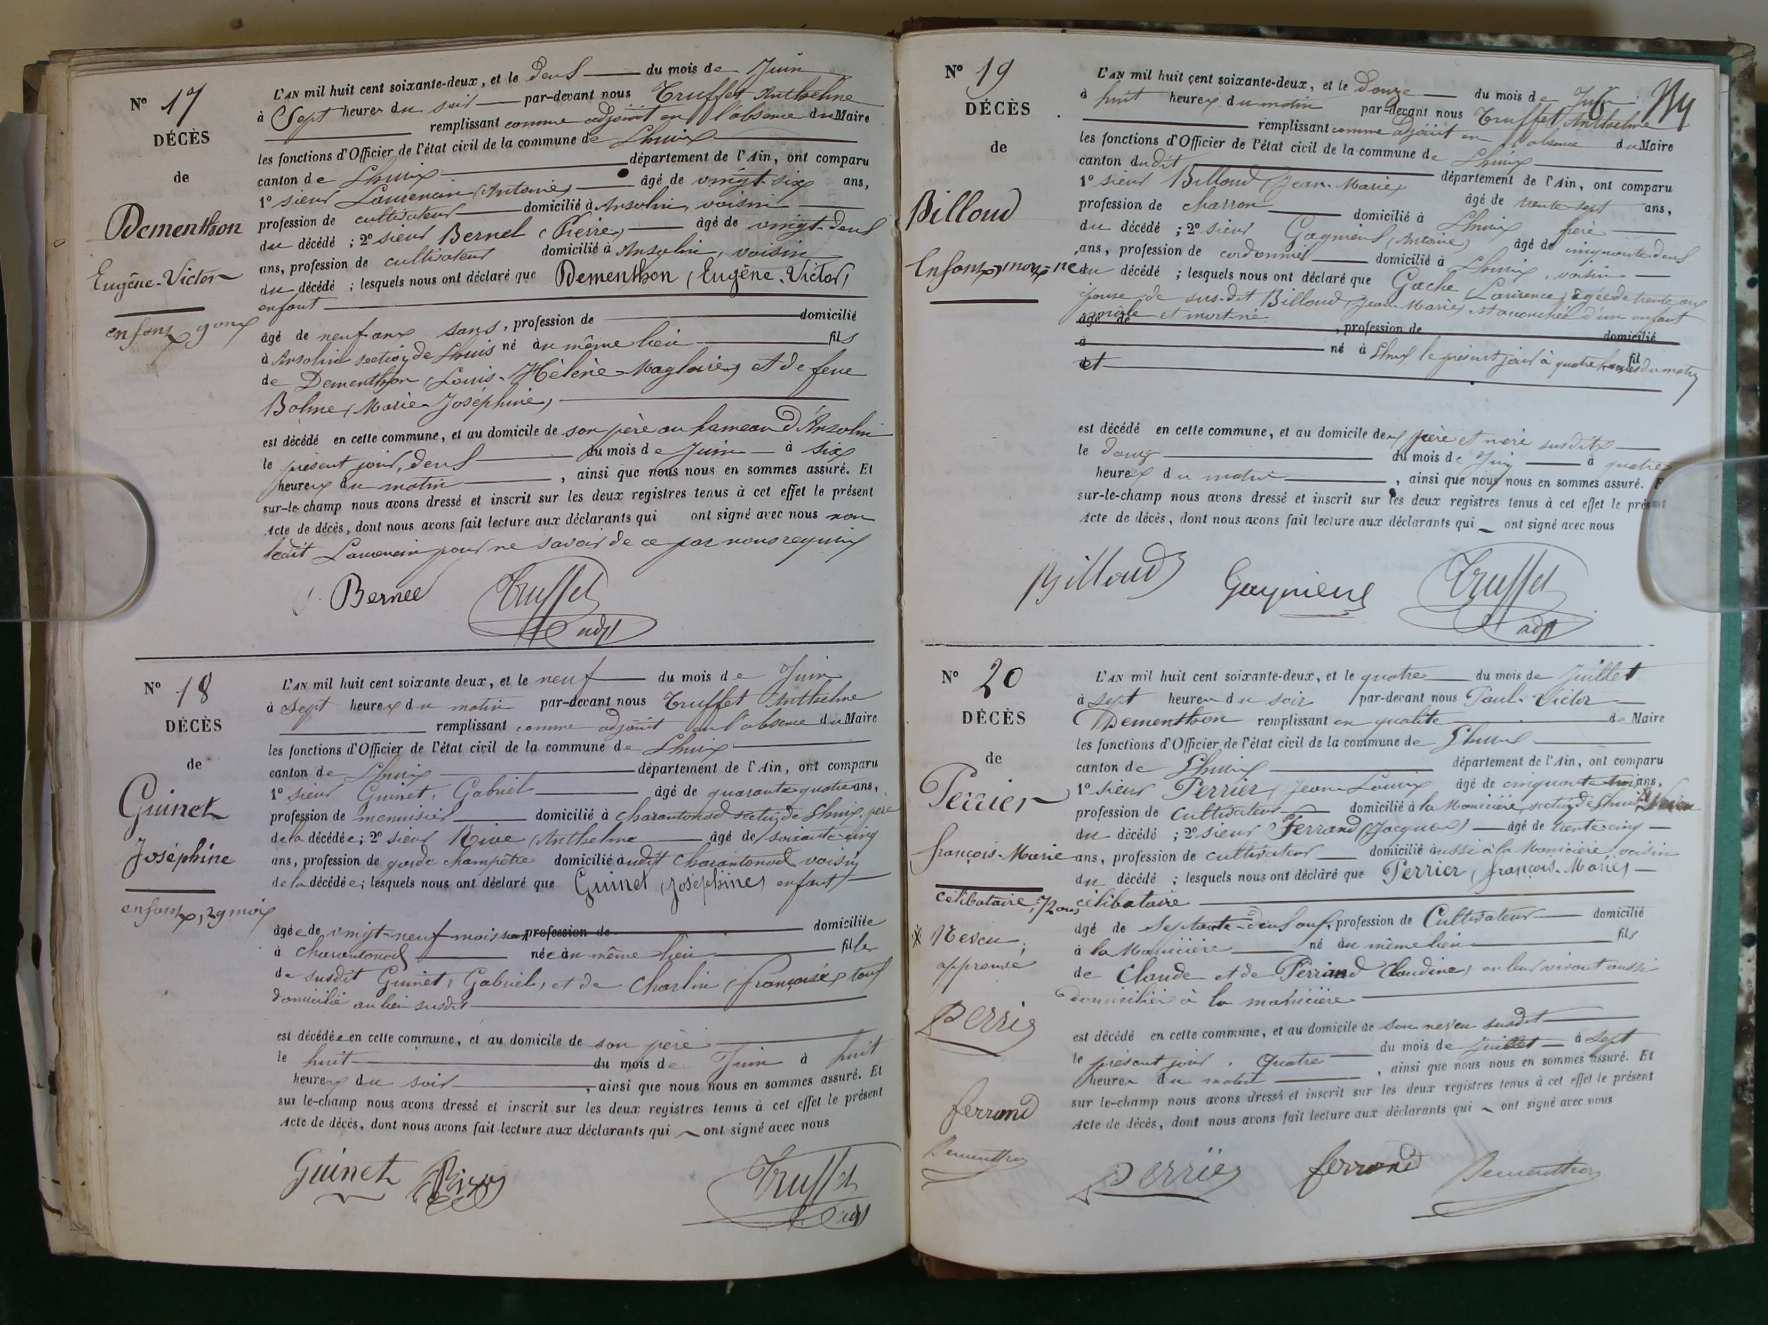 N° 17
DÉCÈS
de
Dementhon
Eugène-Victor
enfant 9 ans
L'AN mil huit cent soixante-deux, et le deux du mois de Juin
à Sept heures du soir par-devant nous Truffet Anthelme
remplissant comme adjoint en l'absence du Maire
les fonctions d'Officier de l'état civil de la commune de Lhuix
canton de Lhuix département de l'Ain, ont comparu
1° sieur (Antoine) âgé de vingt-six ans,
profession de cultivateur domicilié à Ansolin, voisin
du décédé ; 2° sieur Bernet (Pierre) âgé de vingt-deux
ans, profession de cultivateur domicilié à Ansolin, voisin
du décédé ; lesquels nous ont déclaré que Dementhon (Eugène-Victor)
enfant
âgé de neuf ans sans, profession de domicilié
à Ansolin section de Lhuis né au même lieu fils
de Dementhon (Louis-Hélène-Magloire) et de feue
Bolme (Marie-Joséphine)
est décédé en cette commune, et au domicile de son père au hameau d'Ansolin
le présent jour, deux du mois de Juin à six
heures du matin, ainsi que nous nous en sommes assuré. Et
sur-le-champ nous avons dressé et inscrit sur les deux registres tenus à cet effet le présent
Acte de décès, dont nous avons fait lecture aux déclarants qui ont signé avec nous non
ledit pour ne savoir de ce par nous requis
Bernet Truffet
adjt
N° 18
DÉCÈS
de
Guinet
Joséphine
enfant, 29 mois
L'AN mil huit cent soixante deux, et le neuf du mois de Juin
à sept heures du matin par-devant nous Truffet Anthelme
remplissant comme adjoint en l'absence du Maire
les fonctions d'Officier de l'état civil de la commune de Lhuix
canton de Lhuix département de l'Ain, ont comparu
1° sieur Guinet, Gabriel âgé de quarante quatre ans,
profession de menuisier domicilié à Charantonod section de Lhuix, père
de la décédée ; 2° sieur Rive (Anthelme) âgé de soixante cinq
ans, profession de garde champêtre domicilié à udit Charantonod voisin
de la décédée ; lesquels nous ont déclaré que Guinet (Joséphine) enfant
âgée de vingt-neuf mois sans profession de domiciliée
à Charantonod née au même lieu fille
de susdit Guinet, Gabriel, et de Charlin (Françoise) tous
domicilié au lieu susdit
est décédée en cette commune, et au domicile de son père
le huit du mois de Juin à huit
heures du soir, ainsi que nous nous en sommes assuré. Et
sur le-champ nous avons dressé et inscrit sur les deux registres tenus à cet effet le présent
Acte de décès, dont nous avons fait lecture aux déclarants qui ont signé avec nous
Guinet Rive Truffet
adjt
N° 19
DÉCÈS
de
Billoud
Enfant mort-né
L'AN mil huit cent soixante-deux, et le douze du mois de Juin
à huit heures du matin par-devant nous Truffet, Anthelme
remplissant comme adjoint en l'absence du Maire
les fonctions d'Officier de l'état civil de la commune de Lhuix
canton dudit département de l'Ain, ont comparu
1° sieur Billoud (Jean-Marie) âgé de trente sept ans,
profession de charron domicilié à Lhuix père
du décédé ; 2° sieur Gagnieux (Antoine) âgé de cinquante deux
ans, profession de cordonnier domicilié à Lhuix, voisin
du décédé ; lesquels nous ont déclaré que Gache (Laurence) âgée de trente ans
épouse de sus-dit Billoud (Jean-Marie) est accouchée d'un enfant
âgé de mâle et mort né, profession de domicilié
à né à Lhuix le présent jour à quatre heures du matin fil
et
est décédé en cette commune, et au domicile des père et mère susdits
le douze du mois de Juin à quatre
heures du matin, ainsi que nous nous en sommes assuré. E
sur-le-champ nous avons dressé et inscrit sur les deux registres tenus à cet effet le présent
Acte de décès, dont nous avons fait lecture aux déclarants qui ont signé avec nous
Billoud Gagnieux Truffet
adjt
N° 20
DÉCÈS
de
Perrier
François-Marie
célibataire, 72 ans
Neveu,
approuvé
Perrier
ferrand
Dementhon
L'AN mil huit cent soixante-deux, et le quatre du mois de Juillet
à sept heures du soir par-devant nous Paul-Victor
Dementhon remplissant en qualité de Maire
les fonctions d'Officier de l'état civil de la commune de Lhuix
canton de Lhuix département de l'Ain, ont comparu
1° sieur Perrier, Jean Louis âgé de cinquante trois ans,
profession de Cultivateur domicilié à la Manicière section de Lhuix
du décédé ; 2° sieur Ferrand (Jacques) âgé de trente cinq
ans, profession de cultivateur domicilié aussi à la Manicière, voisin
du décédé ; lesquels nous ont déclaré que Perrier (François-Marie)
célibataire
âgé de septante-deux ans, profession de Cultivateur domicilié
à la Manicière né au même lieu fils
de Claude et de Ferrand Claudine, en leur vivant aussi
domiciliés à la manicière
est décédé en cette commune, et au domicile de son neveu susdit
le présent jour, quatre du mois de Juillet à sept
heures du matin, ainsi que nous nous en sommes assuré. Et
sur le-champ nous avons dressé et inscrit sur les deux registres tenus à cet effet le présent
Acte de décès, dont nous avons fait lecture aux déclarants qui ont signé avec nous
Perrier ferrand Dementhon